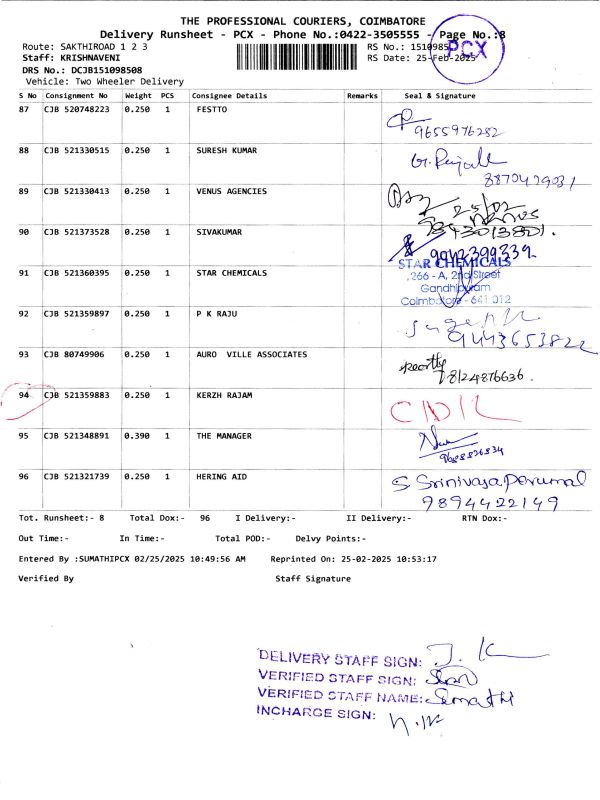 THE PROFESSIONAL COURIERS, COIMBATORE
Delivery Runsheet - PCX - Phone No.:0422-3505555 - Page No.:8
Route: SAKTHIROAD 1 2 3
RS No.: 1510985
PCX
Staff: KRISHNAVENI
RS Date: 25-Feb-2025
DRS No.: DCJB151098508
Vehicle: Two Wheeler Delivery
S No Consignment No Weight PCS Consignee Details Remarks Seal & Signature
87 CJB 520748223 0.250 1 FESTTO
9655976282
88 CJB 521330515 0.250 1 SURESH KUMAR
89 CJB 521330413 0.250 1 VENUS AGENCIES
25/02
90 CJB 521373528 0.250 1 SIVAKUMAR
9942399339
91 CJB 521360395 0.250 1 STAR CHEMICALS
STAR CHEMICALS
266 - A, 2nd Street
Gandhipuram
Coimbatore - 641 012
92 CJB 521359897 0.250 1 P K RAJU
93 CJB 80749906 0.250 1 AURO VILLE ASSOCIATES
8124876636.
94 CJB 521359883 0.250 1 KERZH RAJAM
95 CJB 521348891 0.390 1 THE MANAGER
96 CJB 521321739 0.250 1 HERING AID
S Srinivasa Perumal
9894422149
Tot. Runsheet:- 8 Total Dox:- 96 I Delivery:- II Delivery:- RTN Dox:-
Out Time:- In Time:- Total POD:- Delvy Points:-
Entered By :SUMATHIPCX 02/25/2025 10:49:56 AM Reprinted On: 25-02-2025 10:53:17
Verified By Staff Signature
DELIVERY STAFF SIGN:
VERIFIED STAFF SIGN:
VERIFIED STAFF NAME: Sumathi
INCHARGE SIGN: